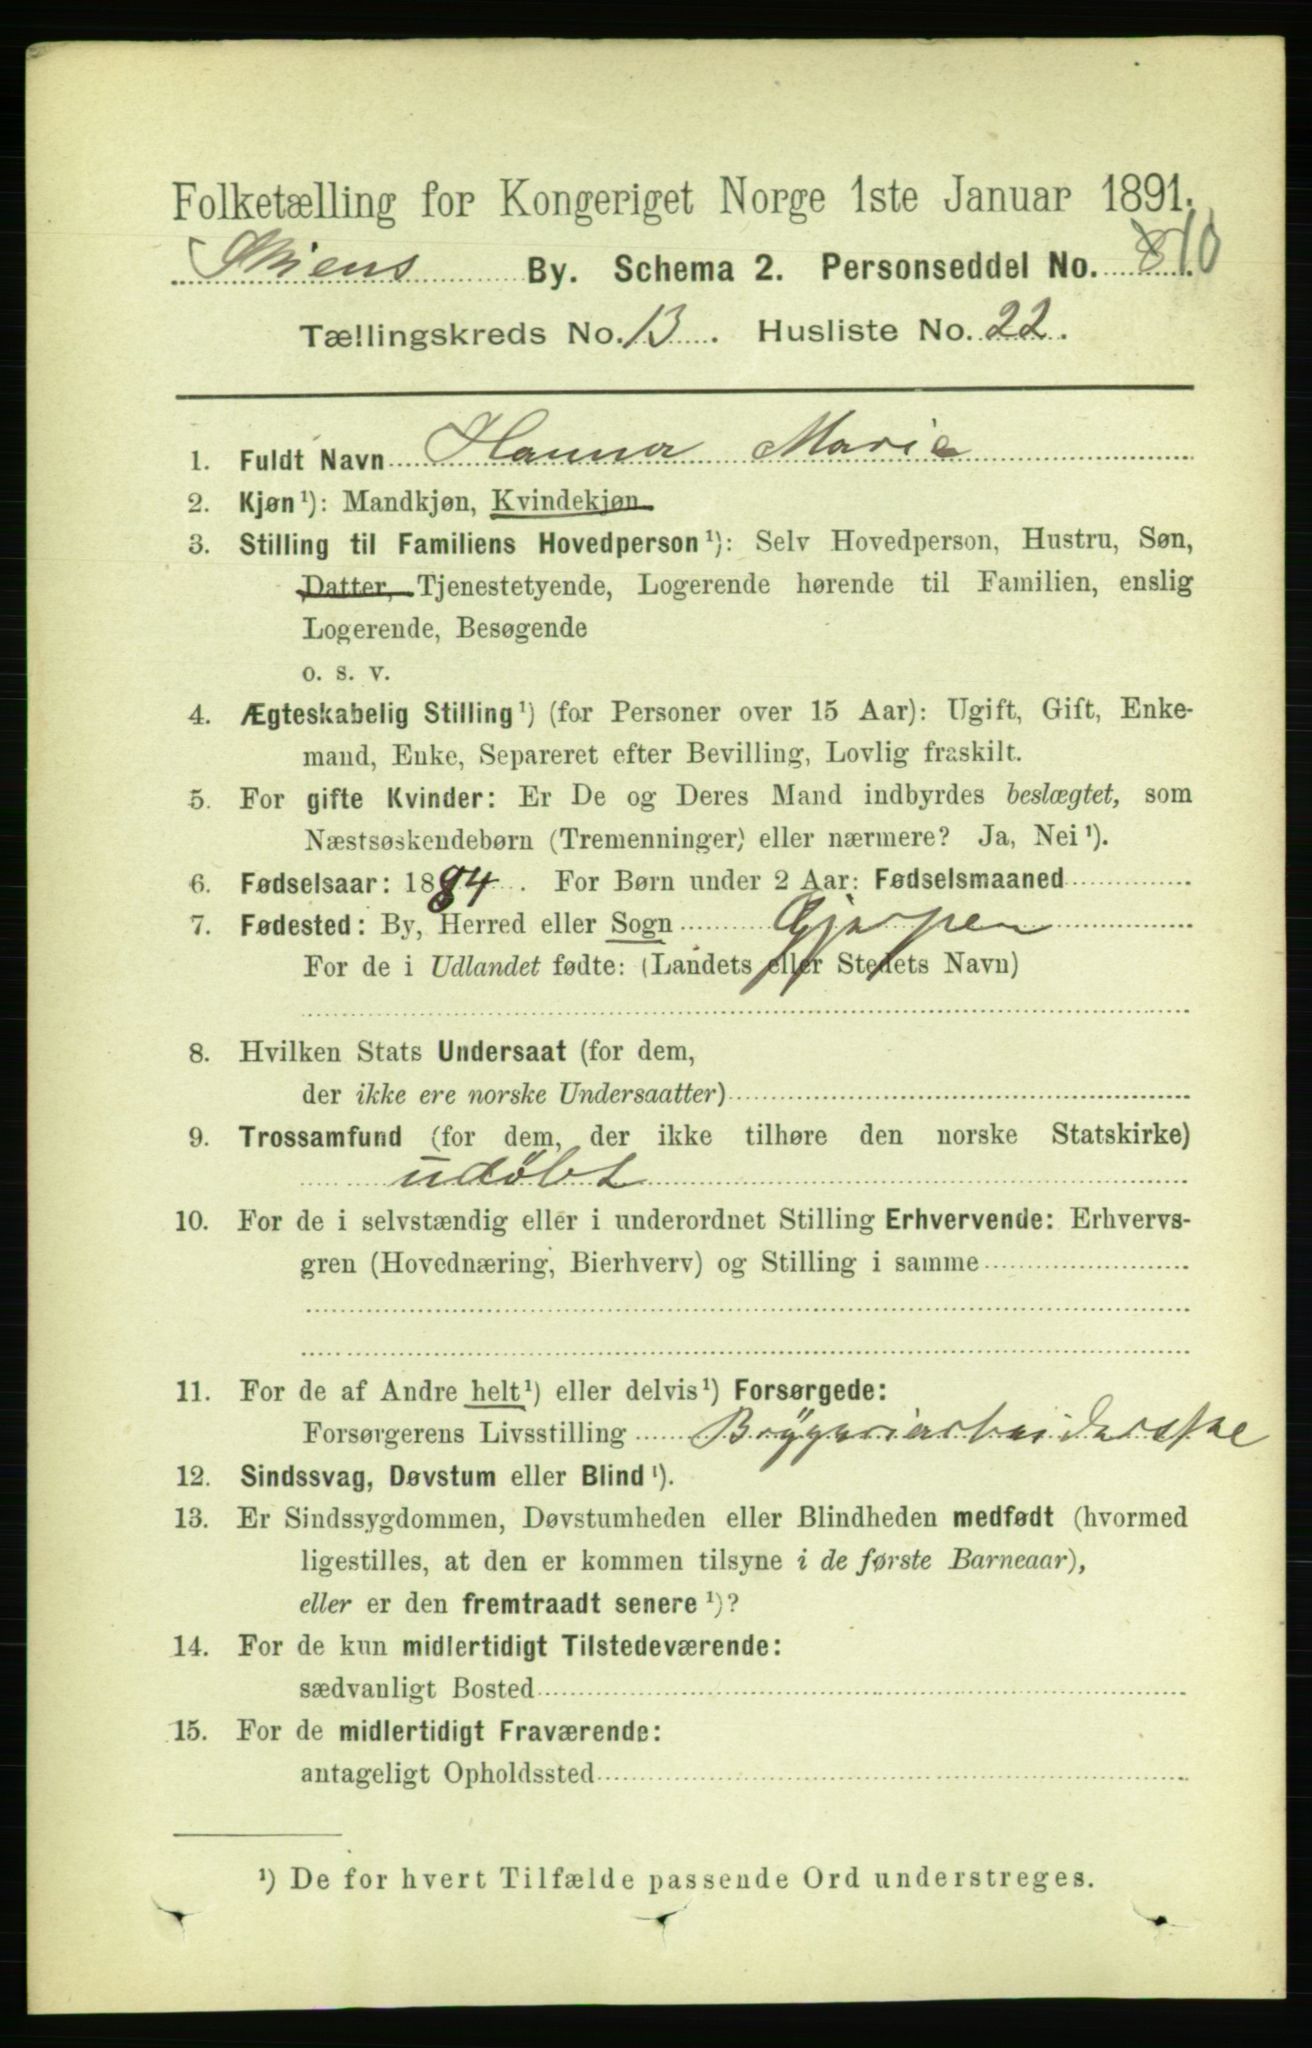 Folketælling for Kongeriget Norge 1ste Januar 1891.
Skiens By. Schema 2. Personseddel No. 8 10
Tællingskreds No. 13. Husliste No. 22.
1. Fuldt Navn Hanna Marie
2. Kjøn¹): Mandkjøn, Kvindekjøn
3. Stilling til Familiens Hovedperson¹): Selv Hovedperson, Hustru, Søn,
Datter, Tjenestetyende, Logerende hørende til Familien, enslig
Logerende, Besøgende
o. s. v.
4. Ægteskabelig Stilling¹) (for Personer over 15 Aar): Ugift, Gift, Enke-
mand, Enke, Separeret efter Bevilling, Lovlig fraskilt.
5. For gifte Kvinder: Er De og Deres Mand indbyrdes beslægtet, som
Næstsøskendebørn (Tremenninger) eller nærmere? Ja, Nei¹).
6. Fødselsaar: 1884. For Børn under 2 Aar: Fødselsmaaned
7. Fødested: By, Herred eller Sogn Gjerpen
For de i Udlandet fødte: (Landets eller Stedets Navn)
8. Hvilken Stats Undersaat (for dem,
der ikke ere norske Undersaatter)
9. Trossamfund (for dem, der ikke tilhøre den norske Statskirke)
udøbt
10. For de i selvstændig eller i underordnet Stilling Erhvervende: Erhvervs-
gren (Hovednæring, Bierhverv) og Stilling i samme
11. For de af Andre helt¹) eller delvis¹) Forsørgede:
Forsørgerens Livsstilling Bryggeriarbeiderske
12. Sindssvag, Døvstum eller Blind¹).
13. Er Sindssygdommen, Døvstumheden eller Blindheden medfødt (hvormed
ligestilles, at den er kommen tilsyne i de første Barneaar),
eller er den fremtraadt senere¹)?
14. For de kun midlertidigt Tilstedeværende:
sædvanligt Bosted
15. For de midlertidigt Fraværende:
antageligt Opholdssted
¹) De for hvert Tilfælde passende Ord understreges.